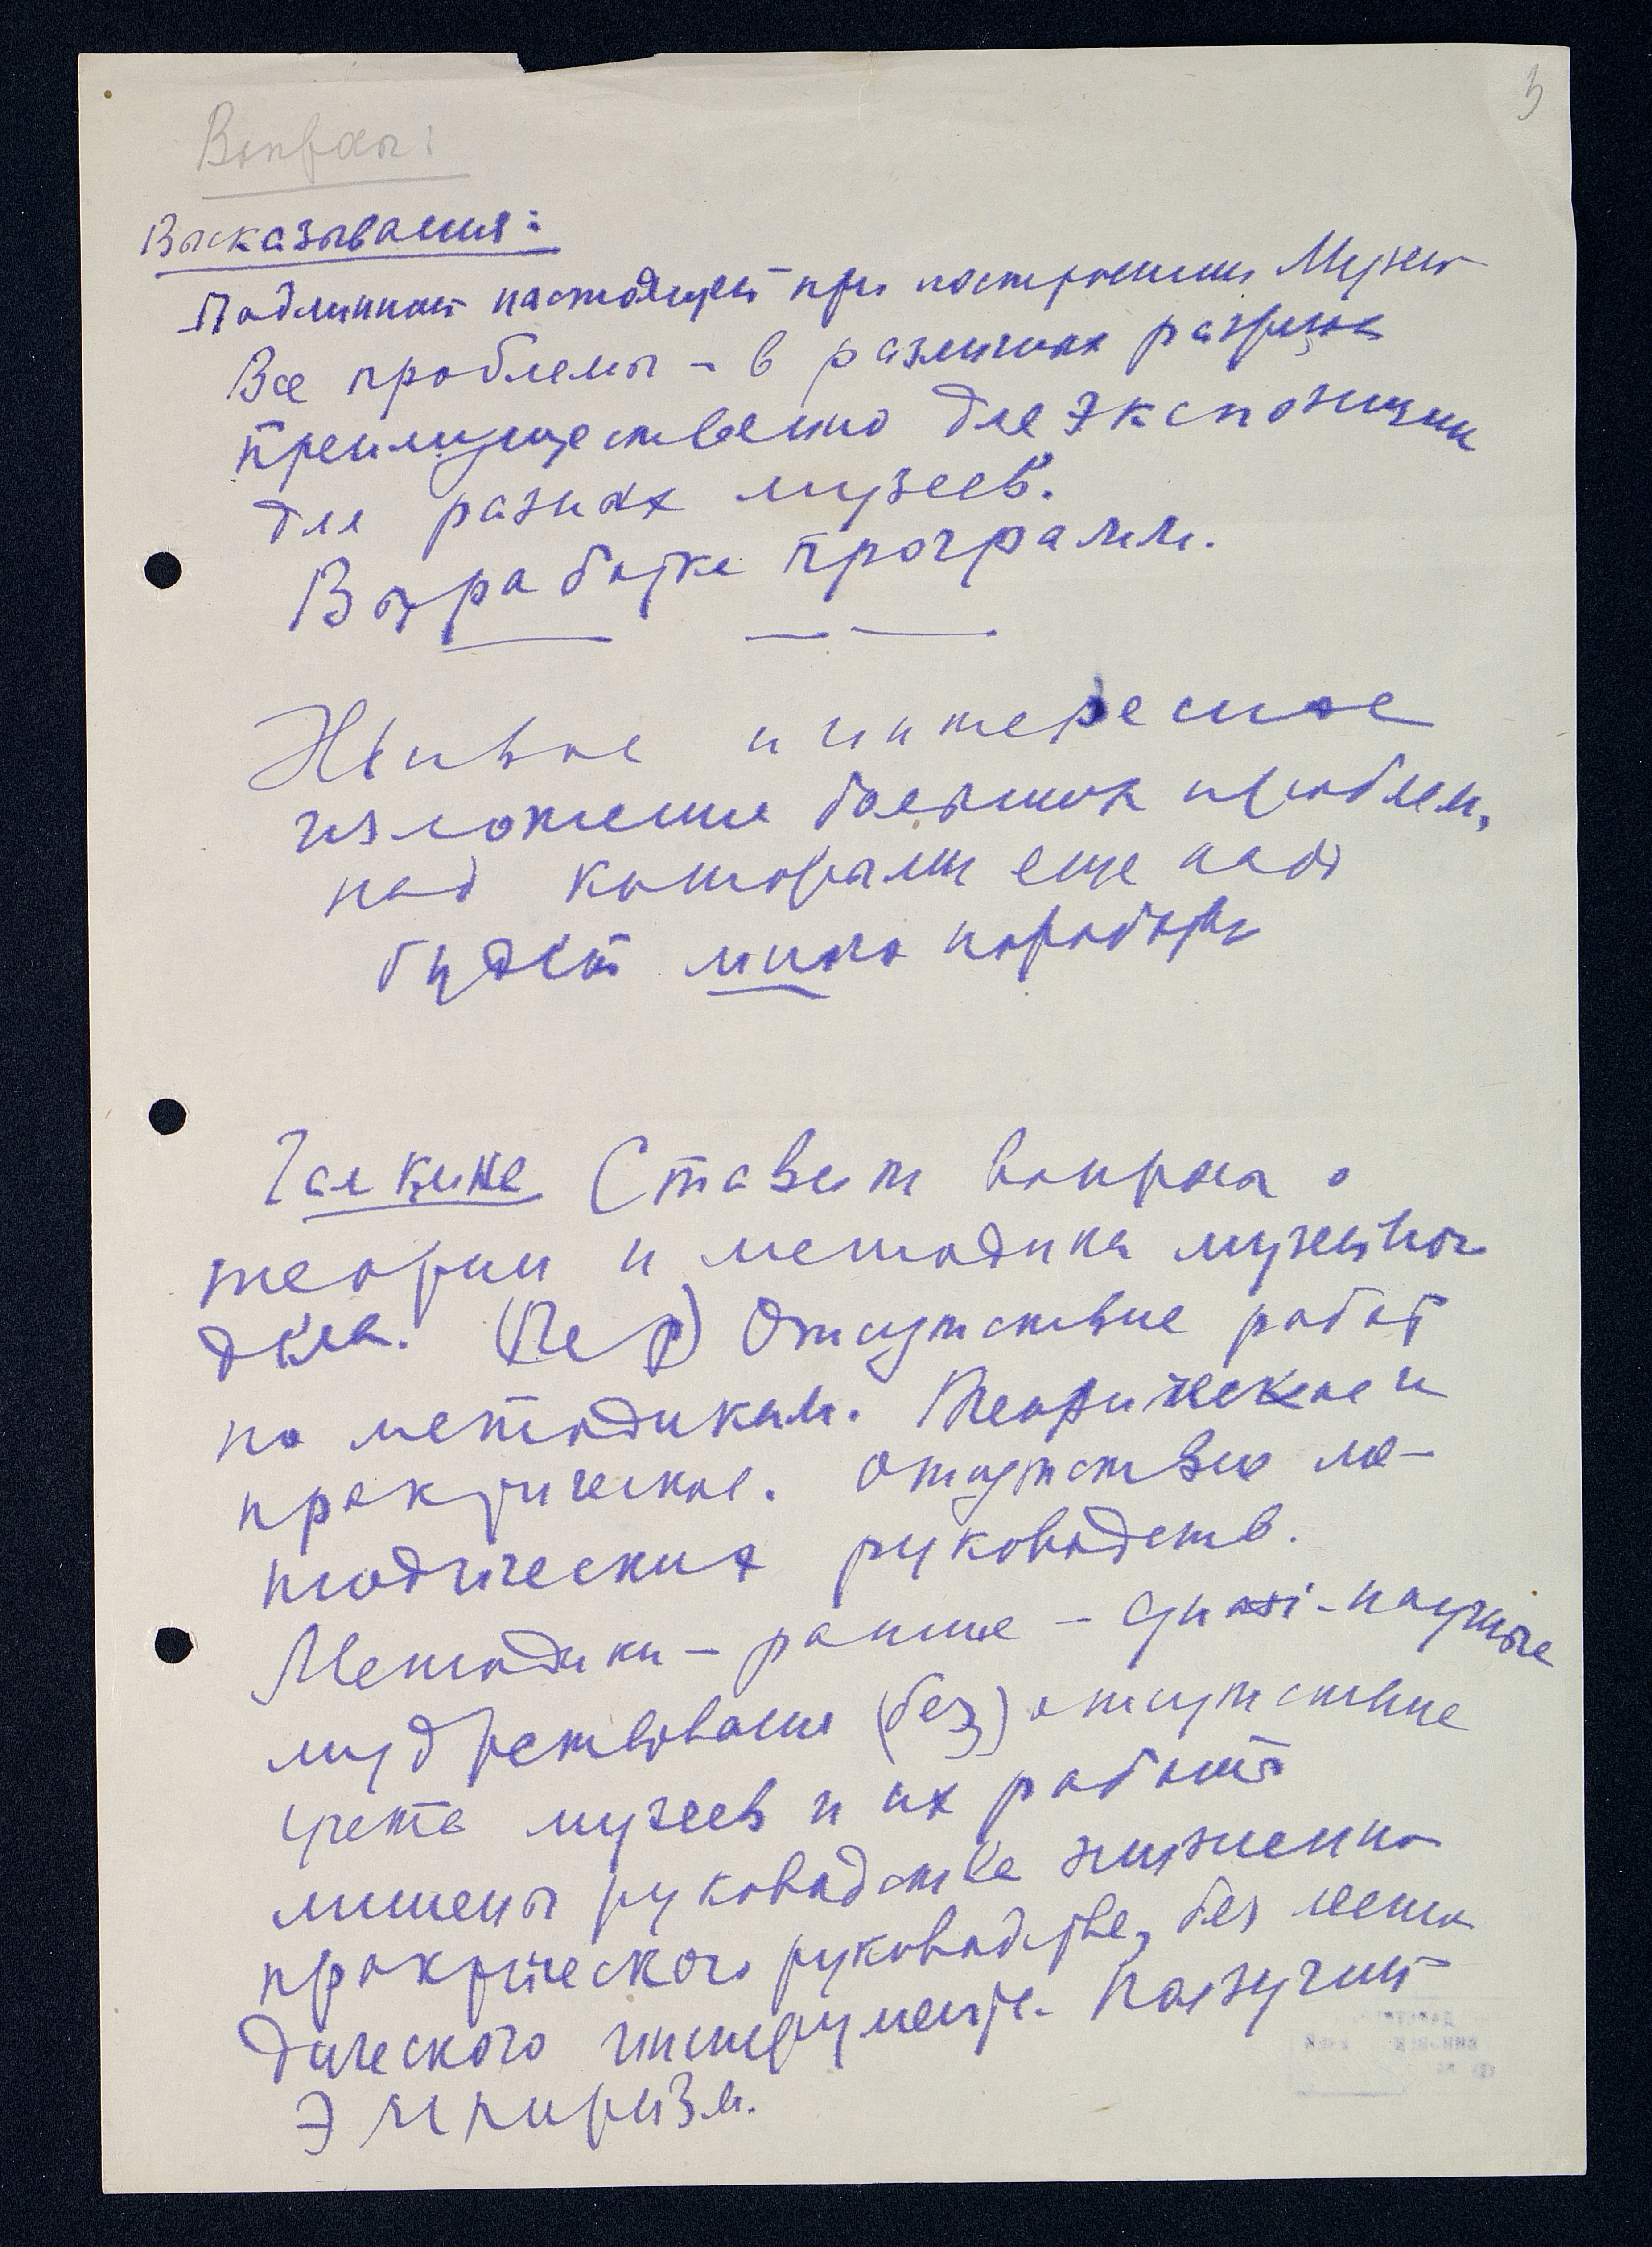 5
Вопросы:
Высказывания:
Подлинное настоящее при построении Музея
Все проблемы – в различных
преимущественно для экспозиции
для разных музеев.
Выработка программ.
Живое и интересное
изложение больших проблем,
над которыми еще надо
будет много поработать
Галкина Ставит вопросы о
теории и методика музейного
дела. Отсутствие работ
по методикам. Теоритическое и
практическое. Отсутствие ме-
тодических руководств.
Методики – раньше – quasi-научные
мудрствования (без) отсутствие
учета музеев и их работы
лишены руководства жизненно
практического руководства, без мето
дического инструмента. Ползучий
Эмпиризм.